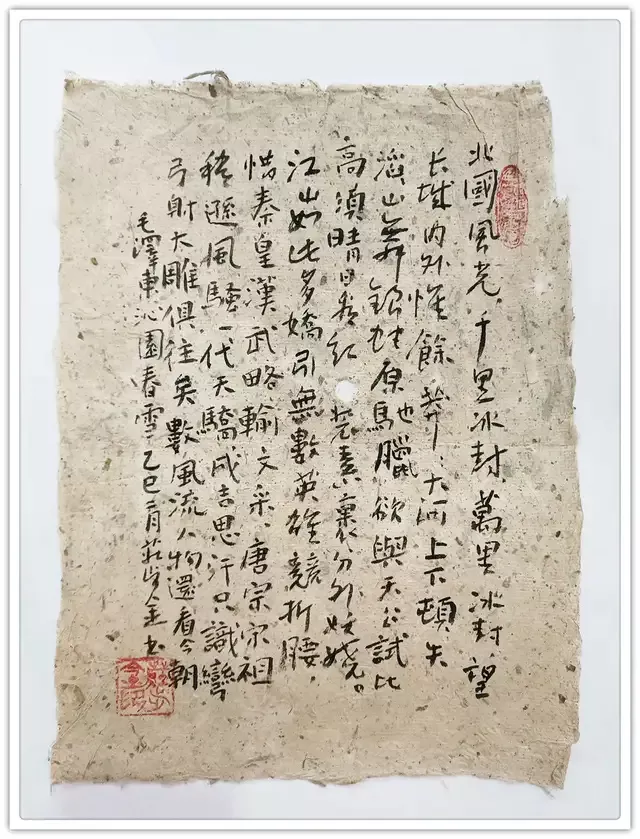 北國風光千里冰封萬里冰封望
长城内外惟餘莽〻大河上下頓失
滔山舞銀蛇原馳臘欲與天公試比
高須晴日看红装素裹分外妖娆。
江山如此多嬌引無數英雄競折腰，
惜秦皇漢武略輸文采、唐宗宋祖
稍遜風騷一代天驕成吉思汗只識彎
弓射大雕俱往矣數風流人物還看今朝
毛澤東沁園春雪乙巳月莊金书